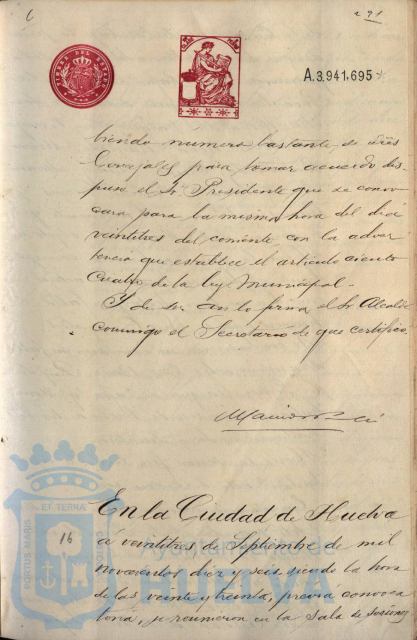 6
291
TIMBRE DEL ESTADO
A.3.941.695*
biendo número bastante de Sres
Concejales para tomar acuerdo dis-
puso el Sr Presidente que se convo-
cara para la misma hora del dia
veintitres del corriente con la adver-
tencia que establece el artículo ciento
cuatro de la ley Municipal.
Y de ser así lo firma el Sr Alcalde
conmigo el Secretario de que certifico.
En la Ciudad de Huelva
á veintitres de Septiembre de mil
novecientos diez y seis siendo la hora
de las veinte y treinta, previa convoca
toria, se reunieron en la Sala de sesiones
16
PORTUS MARIS ET TERRAE CUSTODIA
Ayuntamiento de
HUELVA